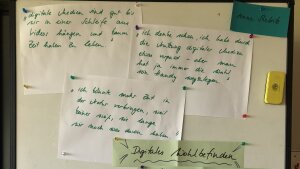 digitale Medien sind gut bis
wir in einer Schleife aus
Videos hängen und kaum
Zeit haben zu leben
ich denke schon, ich habe durch
die Nutzung digitaler Medien
etwas verpasst - oder man
hat ja immer die Wahl
das Handy wegzulegen.
ich könnte mehr Zeit in
der Natur verbringen, weil
keiner weiß, wie lange
wir noch was davon haben
Digitales Wohlbefinden